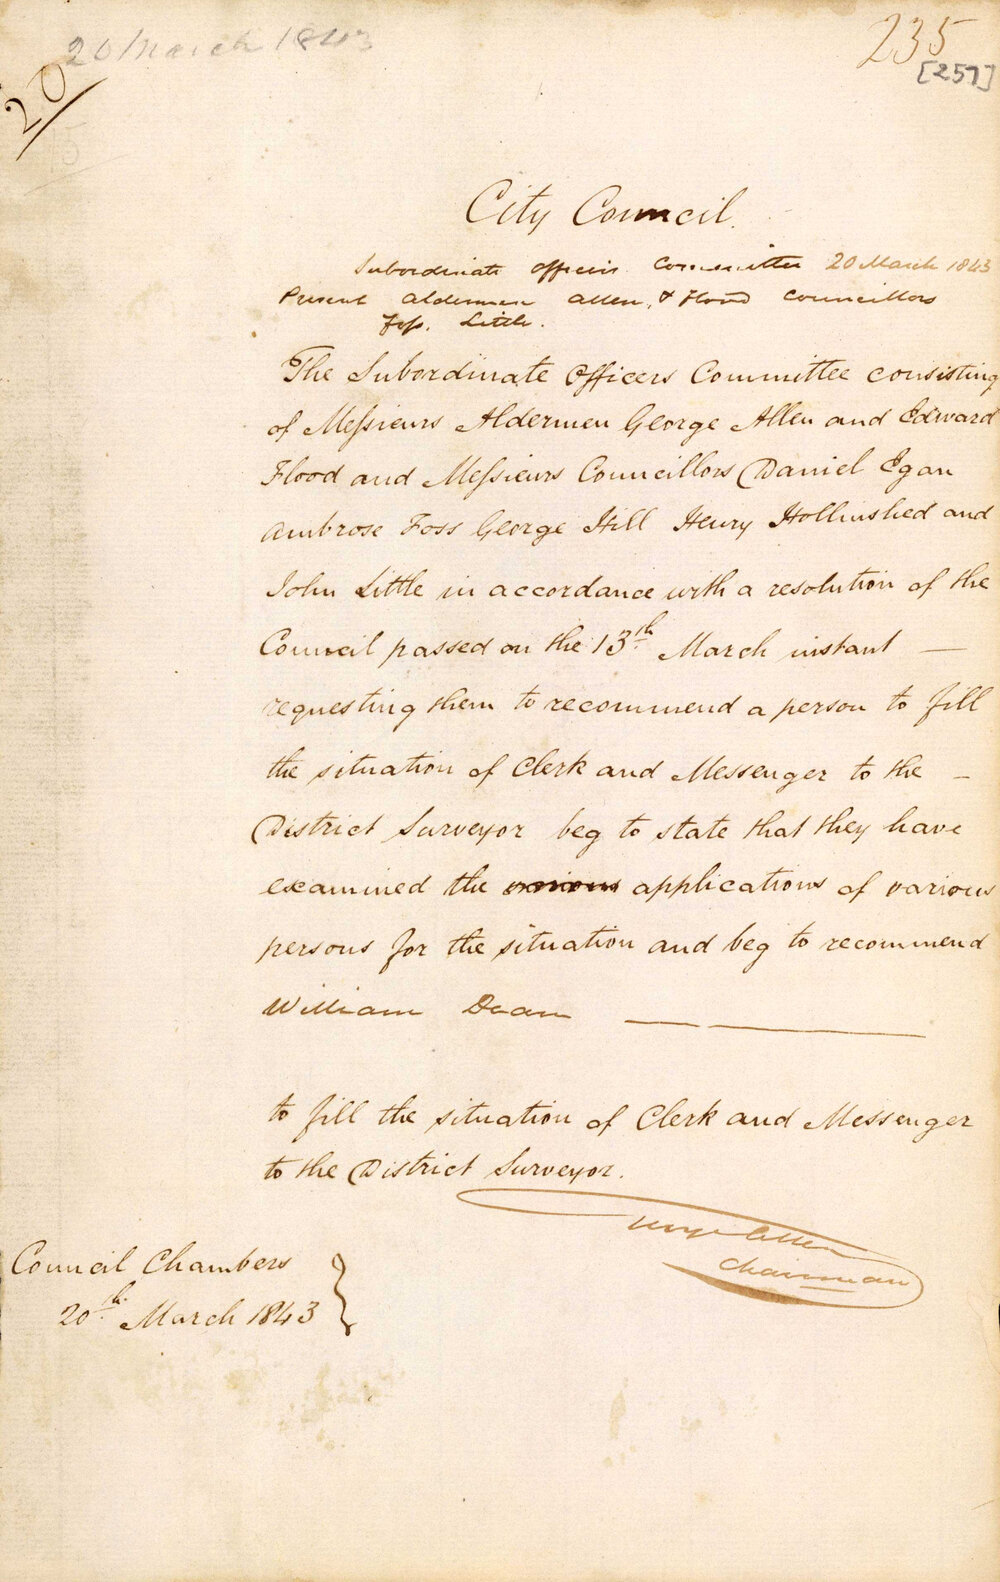 20 March 1843
235
[257]
20
City Council.
Subordinate officers Committee 20 March 1843
Present Aldermen Allen, & Flood Councillors
Foss. Little.
The Subordinate Officers Committee consisting
of Messieurs Aldermen George Allen and Edward
Flood and Messieurs Councillors Daniel Egan
Ambrose Foss George Hill Henry Hollinshed and
John Little in accordance with a resolution of the
Council passed on the 13th March instant —
requesting them to recommend a person to fill
the situation of Clerk and Messenger to the —
District Surveyor beg to state that they have
examined the various applications of various
persons for the situation and beg to recommend
William Dean — —
to fill the situation of Clerk and Messenger
to the District Surveyor.
George Allen
Chairman
Council Chambers
20th March 1843 }